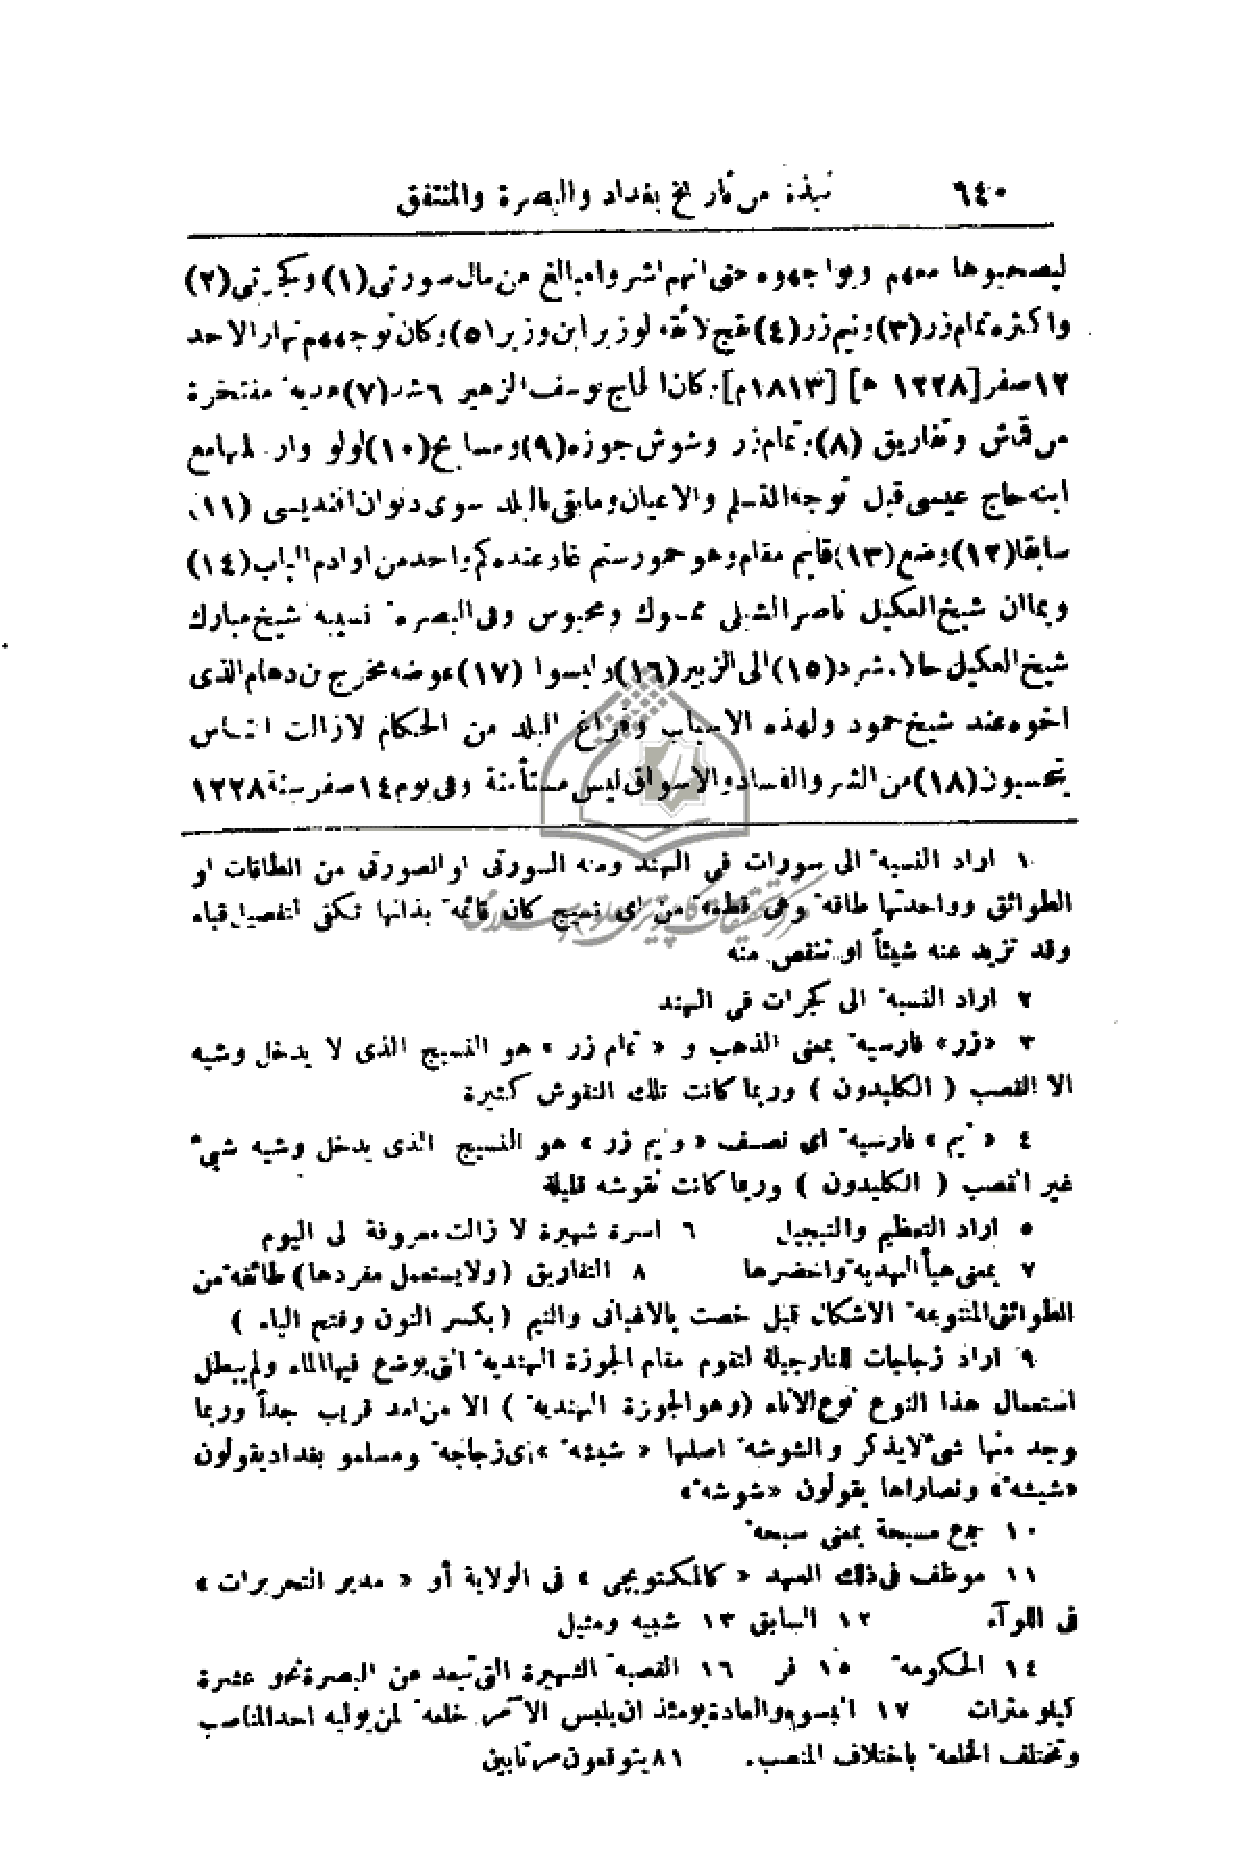 ٦٤٠ نبذة من تاريخ بغداد والبصرة والمنتفق
ليصحبوها معهم ويواجهوه حتى انهم اشروا مبالغ من مال صورتي (١) وكجرتي (٢)
واكثره تمام زر (٣) ونيم زر (٤) لائقة لوزير ابن وزير (٥) وكان توجههم نهار الاحد
١٢ صفر [١٢٢٨ ه] [١٨١٣م] وكان الحاج يوسف الزهير ٦ شد (٧) هدية مفتخرة
من قماش وتفاريق (٨) وتمام زر وشوش جوزه (٩) ومسابح (١٠) لولو وار مع
ابنه حاج عيسى قبل توجه المتسلم والاعيان وما بقى بالبلد سوى ديوان افنديسى (١١)
سابقا (١٢) وضع (١٣) قايم مقام وهو حمو رستم غا وعنده كم واحد من اوادم الباب (١٤)
وبما ان شيخ العكيل ناصر الشبلى ممسوك ومحبوس وفى البصرة نسيبه شيخ مبارك
شيخ العكيل حالا شرد (١٥) الى الزبير (١٦) ولبسوا (١٧) عوضه مخرج بن دهام الذى
اخوه عند شيخ حمود ولهذه الاسباب وفراغ البلد من الحكام لا زالت الناس
يتحسبون (١٨) من الشر والفساد والاسواق ليس مستأمنة وفى يوم ١٤ صفر سنة ١٢٢٨
١ اراد النسبة الى سورات في الهند ومنه السورتى او الصورتى من الطاقات او
الطوائق وواحدتها طاقة وهى قطعة من اى نسيج كان قائمة بذاتها تكفى لتفصيل قباء
وقد تزيد عنه شيئاً او تنقص منه
٢ اراد النسبة الى كجرات في الهند
٣ «زر» فارسية بمعنى الذهب و « تمام زر » هو النسيج الذى لا يدخل وشيه
الا القصب ( الكلبدون ) وربما كانت تلك النقوش كثيرة
٤ « نيم » فارسية اى نصف « ونيم زر » هو النسيج الذى يدخل وشيه شيء
غير القصب ( الكلبدون ) وربما كانت نقوشه قليلة
٥ اراد التعظيم والتبجيل ٦ اسرة شهيرة لا زالت معروفة لى اليوم
٧ بمعنى هيأ الهدية واحضرها ٨ التفاريق (ولا يستعمل مفردها) طائفة من
الطوائق المتنوعة الاشكال قبل خصت بالاغبانى والنيم (بكسر النون وفتح الياء )
٩ اراد زجاجات النارجيلة لتقوم مقام الجوزة الهندية التى يوضع فيها الماء ولم يبطل
استعمال هذا النوع نوع الاناء (وهو الجوزة الهندية ) الا من امد قريب جداً وربما
وجد منها شىء لا يذكر والشوشة اصلها « شيشة » اى زجاجة ومسلمو بغداد يقولون
«شيشة» ونصاراها يقولون «شوشة»
١٠ جمع مسبحة بمعنى سبحة
١١ موظف فى ذلك العهد « كالمكتوبجى » فى الولاية أو « مدير التحريرات »
فى اللوآء ١٢ السابق ١٣ شبيه ومثيل
١٤ الحكومة ١٥ فر ١٦ القصبة الشهيرة التى تبعد عن البصرة نحو عشرة
كيلو مترات ١٧ البسوه والعادة يومئذ ان يلبس الآمر خلعة لمن يوليه احد المناصب
وتختلف الخلعة باختلاف المنصب. ١٨ يتوقعون مرتابين